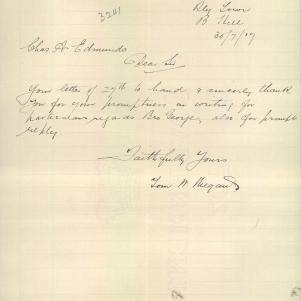 3241
Rly Town
B. Hill
30/7/17
Chas A Edmunds
Dear Sir
Your letter of 27th to hand, & sincerely thank
you for your promptness in writing for
particulars regards Bro George, also for prompt
reply
Faithfully Yours
Tom W